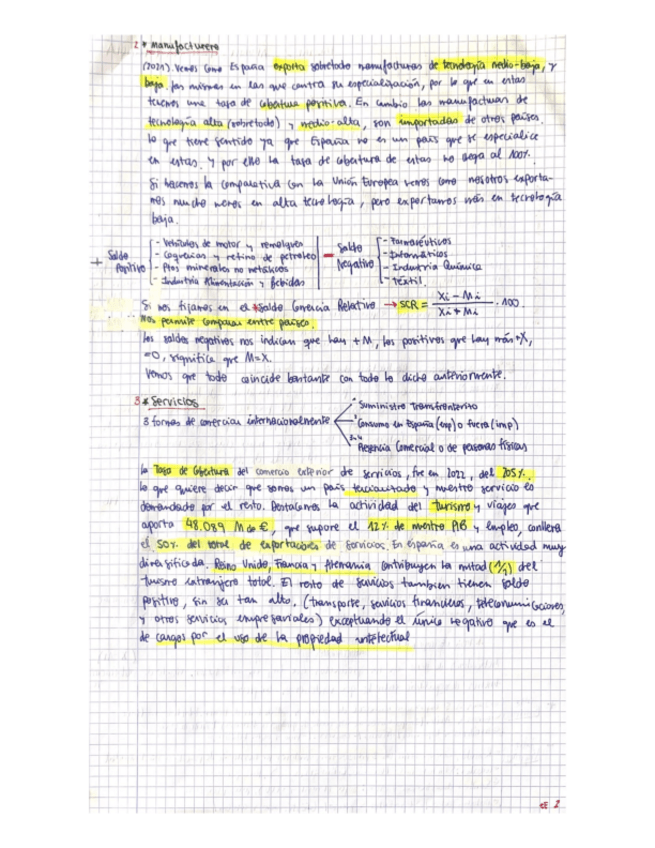 2 * Manufacturero
(2021). Vemos como España exporta sobretodo manufacturas de tecnología medio-baja, y
baja. Las mismas en las que centra su especialización, por lo que en estas
tenemos una tasa de cobertura positiva. En cambio las manufacturas de
tecnología alta (sobretodo) y medio-alta, son importadas de otros países.
lo que tiene sentido ya que España no es un país que se especialice
en estas. y por ello la tasa de cobertura de estas no llega al 100%.
Si hacemos la comparativa con la Unión Europea vemos como nosotros exporta-
mos mucho menos en alta tecnología, pero exportamos más en tecnología
baja.
+ Saldo Positivo
- Vehículos de motor y remolques
- Coquerías y refino de petroleo
- Ptos minerales no metálicos
- Industria Alimentación y Bebidas
- Saldo Negativo
- Farmacéuticos
- Informáticos
- Industria Química
- Textil.
Si nos fijamos en el *Saldo Comercio Relativo → SCR = Xi - Mi / Xi + Mi . 100
Nos permite comparar entre países.
los saldos negativos nos indican que hay + M, los positivos que hay más X,
=0, significa que M=X.
Vemos que todo coincide bastante con todo lo dicho anteriormente.
3 * Servicios
3 formas de comerciar internacionalmente
Suministro Transfronterizo
Consumo en España (exp) o fuera (imp)
Presencia Comercial o de personas físicas
la Tasa de Cobertura del comercio exterior de servicios, fue en 2022, del 205%.
lo que quiere decir que somos un país terciarizado y nuestro servicio es
demandado por el resto. Destacamos la actividad del turismo y viajes que
aporta 48.089 M de €, que supone el 12% de nuestro PIB y empleo, conlleva
el 50% del total de exportaciones de servicios. En españa es una actividad muy
diversificada. Reino Unido, Francia y Alemania contribuyen la mitad del
turismo extranjero total. El resto de servicios tambien tienen saldo
positivo, sin ser tan alto. (transporte, servicios financieros, telecomunicaciones,
y otros servicios empresariales) exceptuando el único negativo que es el
de cargos por el uso de la propiedad intelectual
2